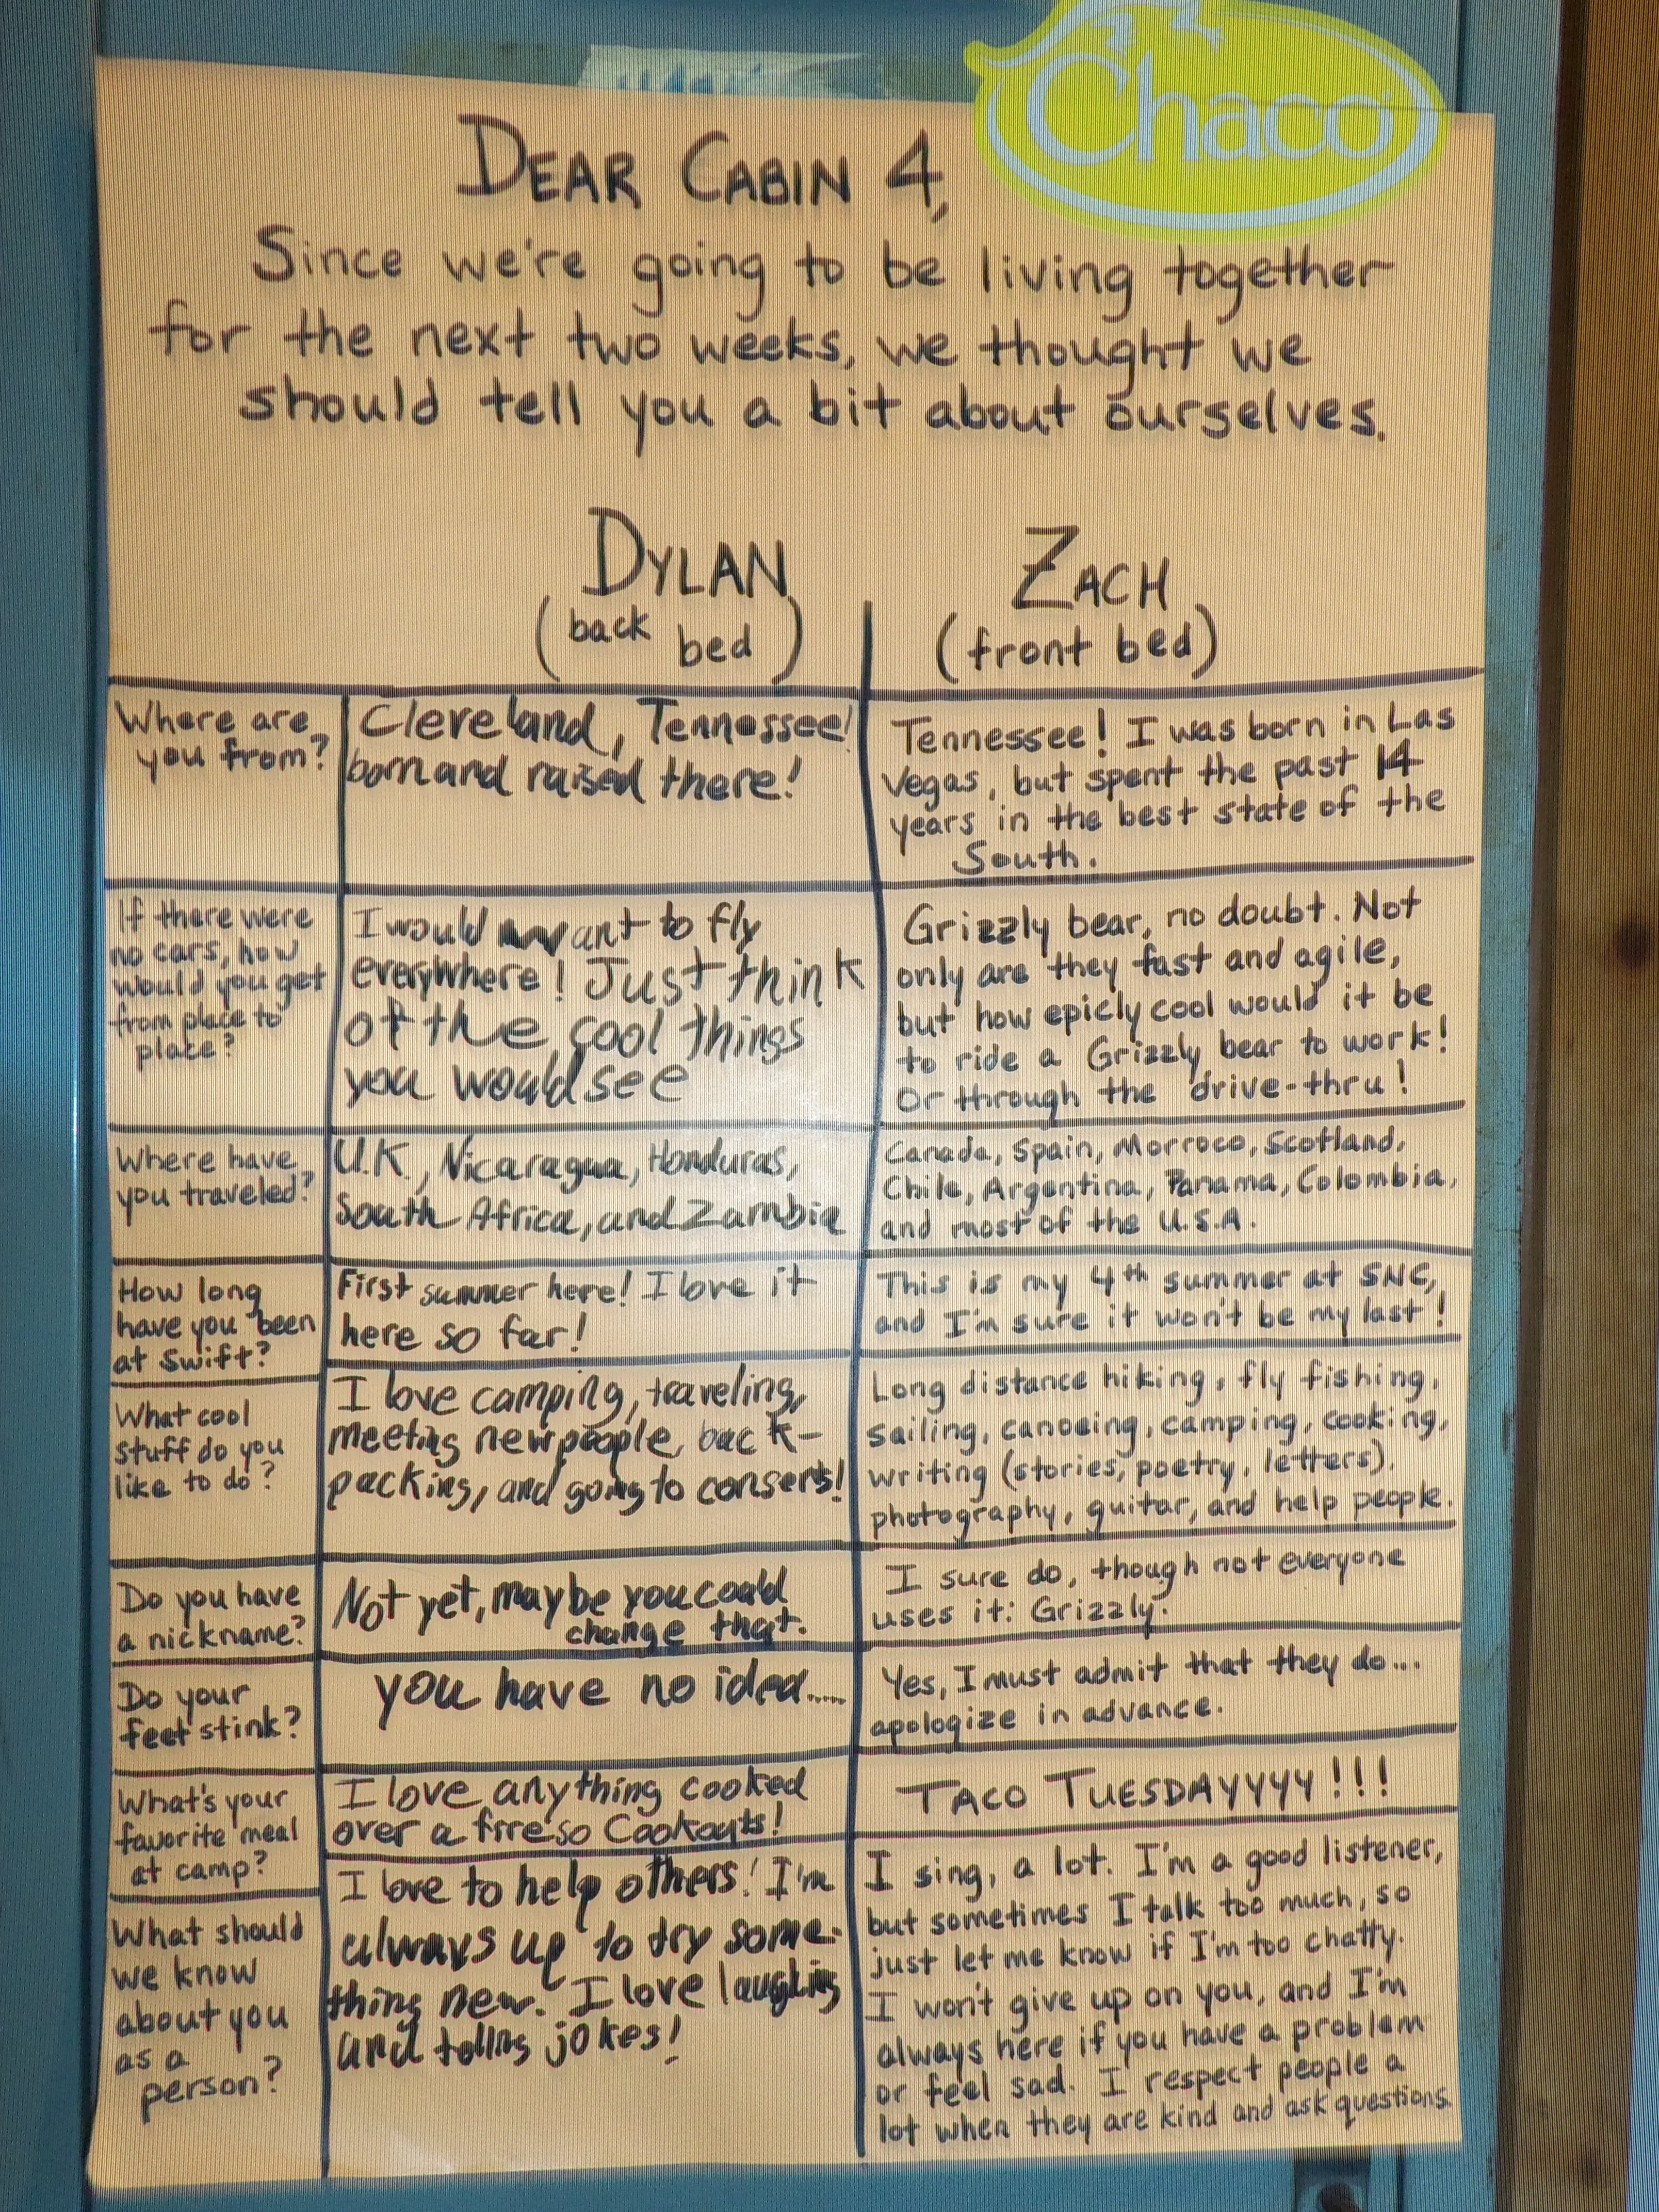 Chaco
DEAR CABIN 4,
Since we're going to be living together
for the next two weeks, we thought we
should tell you a bit about ourselves.
DYLAN
(back bed)
ZACH
(front bed)
Where are
you from?
Cleveland, Tennessee!
born and raised there!
Tennessee! I was born in Las
Vegas, but spent the past 14
years in the best state of the
South.
If there were
no cars, how
would you get
from place to
place?
I would want to fly
everywhere! Just think
of the cool things
you would see
Grizzly bear, no doubt. Not
only are they fast and agile,
but how epicly cool would it be
to ride a Grizzly bear to work!
Or through the drive-thru!
Where have
you traveled?
U.K., Nicaragua, Honduras,
South Africa, and Zambia
Canada, Spain, Morroco, Scotland,
Chile, Argentina, Panama, Colombia,
and most of the U.S.A.
How long
have you been
at Swift?
First summer here! I love it
here so far!
This is my 4th summer at SNC,
and I'm sure it won't be my last!
What cool
stuff do you
like to do?
I love camping, traveling,
meeting new people, back-
packing, and going to conserts!
Long distance hiking, fly fishing,
sailing, canoeing, camping, cooking,
writing (stories, poetry, letters),
photography, guitar, and help people.
Do you have
a nickname?
Not yet, maybe you could
change that.
I sure do, though not everyone
uses it: Grizzly.
Do your
feet stink?
you have no idea.....
Yes, I must admit that they do...
apologize in advance.
What's your
favorite meal
at camp?
I love anything cooked
over a fire so Cookouts!
TACO TUESDAYYYY!!!
What should
we know
about you
as a
person?
I love to help others! I'm
always up to try some-
thing new. I love laughing
and telling jokes!
I sing, a lot. I'm a good listener,
but sometimes I talk too much, so
just let me know if I'm too chatty.
I won't give up on you, and I'm
always here if you have a problem
or feel sad. I respect people a
lot when they are kind and ask questions.